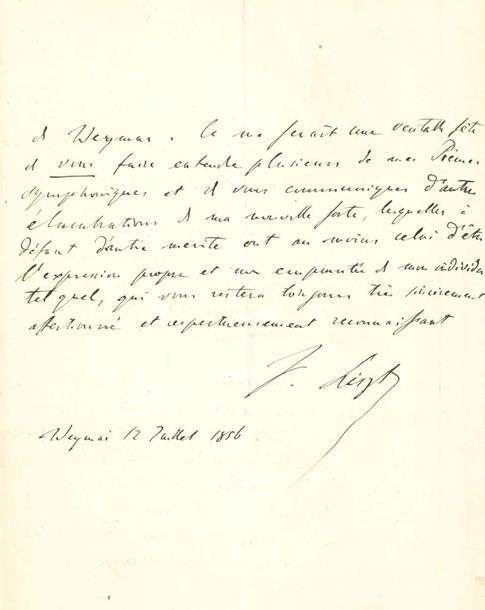 de Weymar. Ce me serait une veritable fête
de vous faire entendre plusieurs de mes Poëmes
symphoniques et de vous communiquer d'autres
élucubrations de ma nouvelle sorte, lesquelles à
défaut d'autre merite ont au moins celui d'être
l'expression propre et non empruntée de mon individu
tel quel, qui vous restera toujours très sincèrement
affectionné et respectueusement reconnaissant
F. Liszt
Weymar 12 Juillet 1856